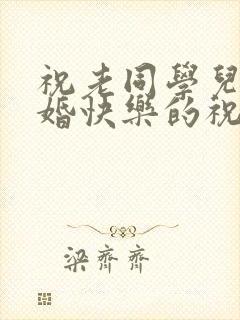 祝老同學兒
婚快樂的祝
梁齊齊